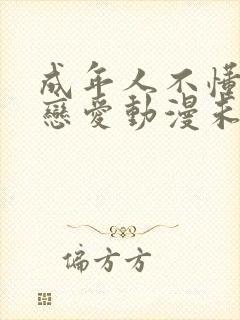 成年人不懂
戀愛動漫未
偏方方